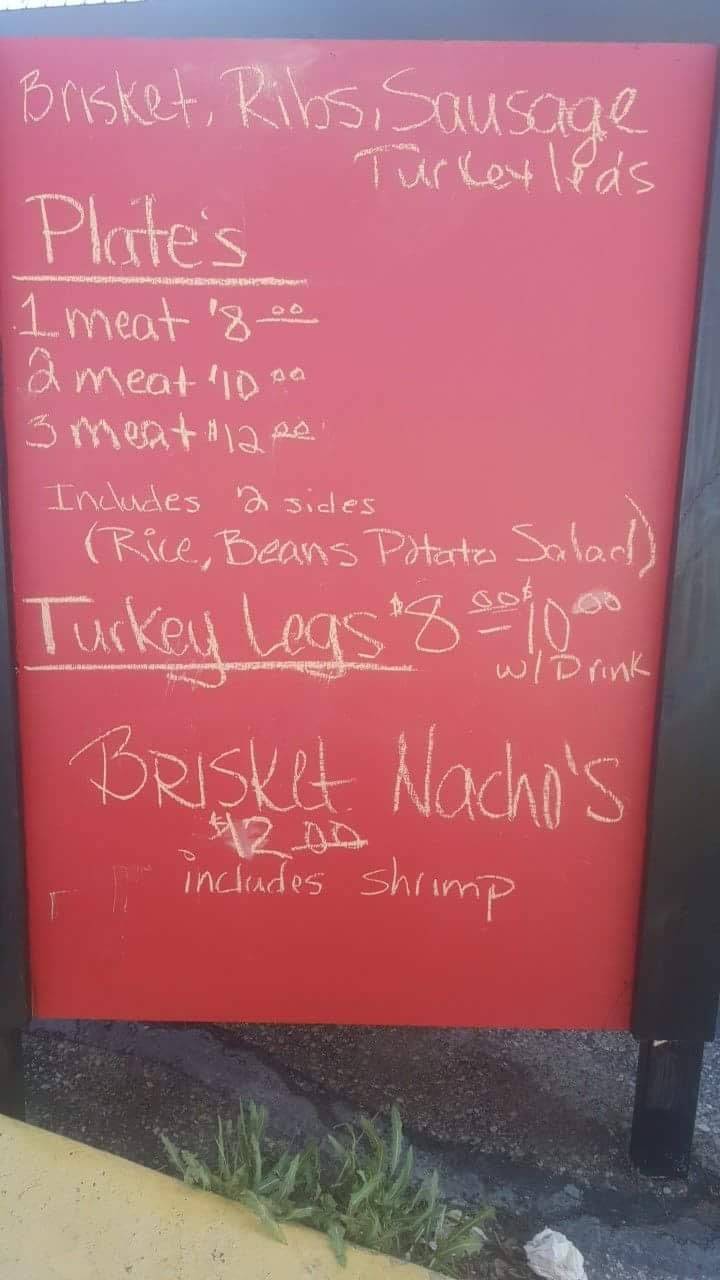 Brisket, Ribs, Sausage
Turkey
Plate's
1 meat $8.00
2 meat $10.00
3 meat $12.00
Includes 2 sides
(Rice, Beans Potato Salad)
Turkey Legs $8.00 - $10.00
w/Drink
BRISket Nacho's
$12.00
includes shrimp